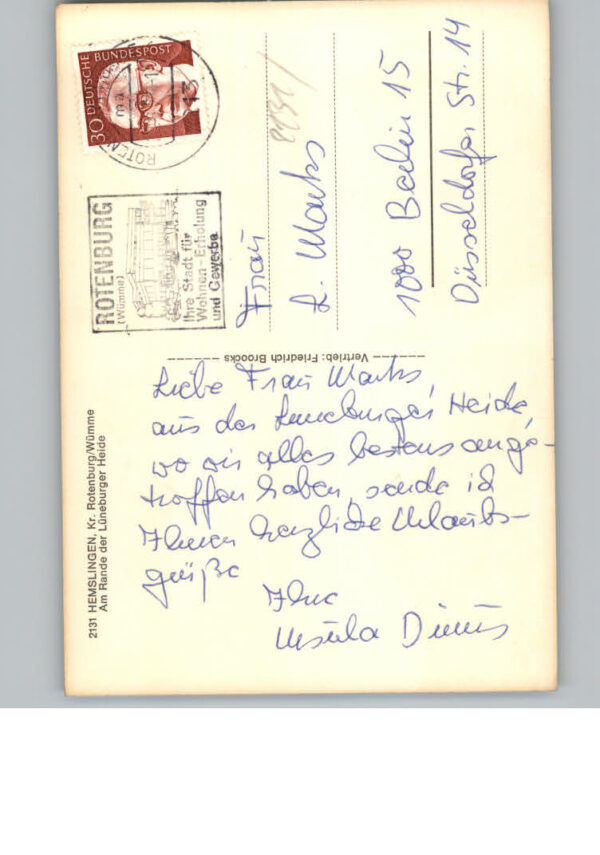 2131 HEMSLINGEN, Kr. Rotenburg/Wümme
Am Rande der Lüneburger Heide
Liebe Frau Marks,
aus der Luneburger Heide,
wo wir alles bestens ange-
troffen haben, sende ich
Ihnen herzliche Urlaubs-
grüße
Ihre
Ursula
Vertrieb: Friedrich Broocks
DEUTSCHE BUNDESPOST
30
ROTENBURG
(Wümme)
Ihre Stadt für
Wohnen-Erholung
und Gewerbe
Frau
L. Marks
1000 Berlin 15
Düsseldorfer Str. 14